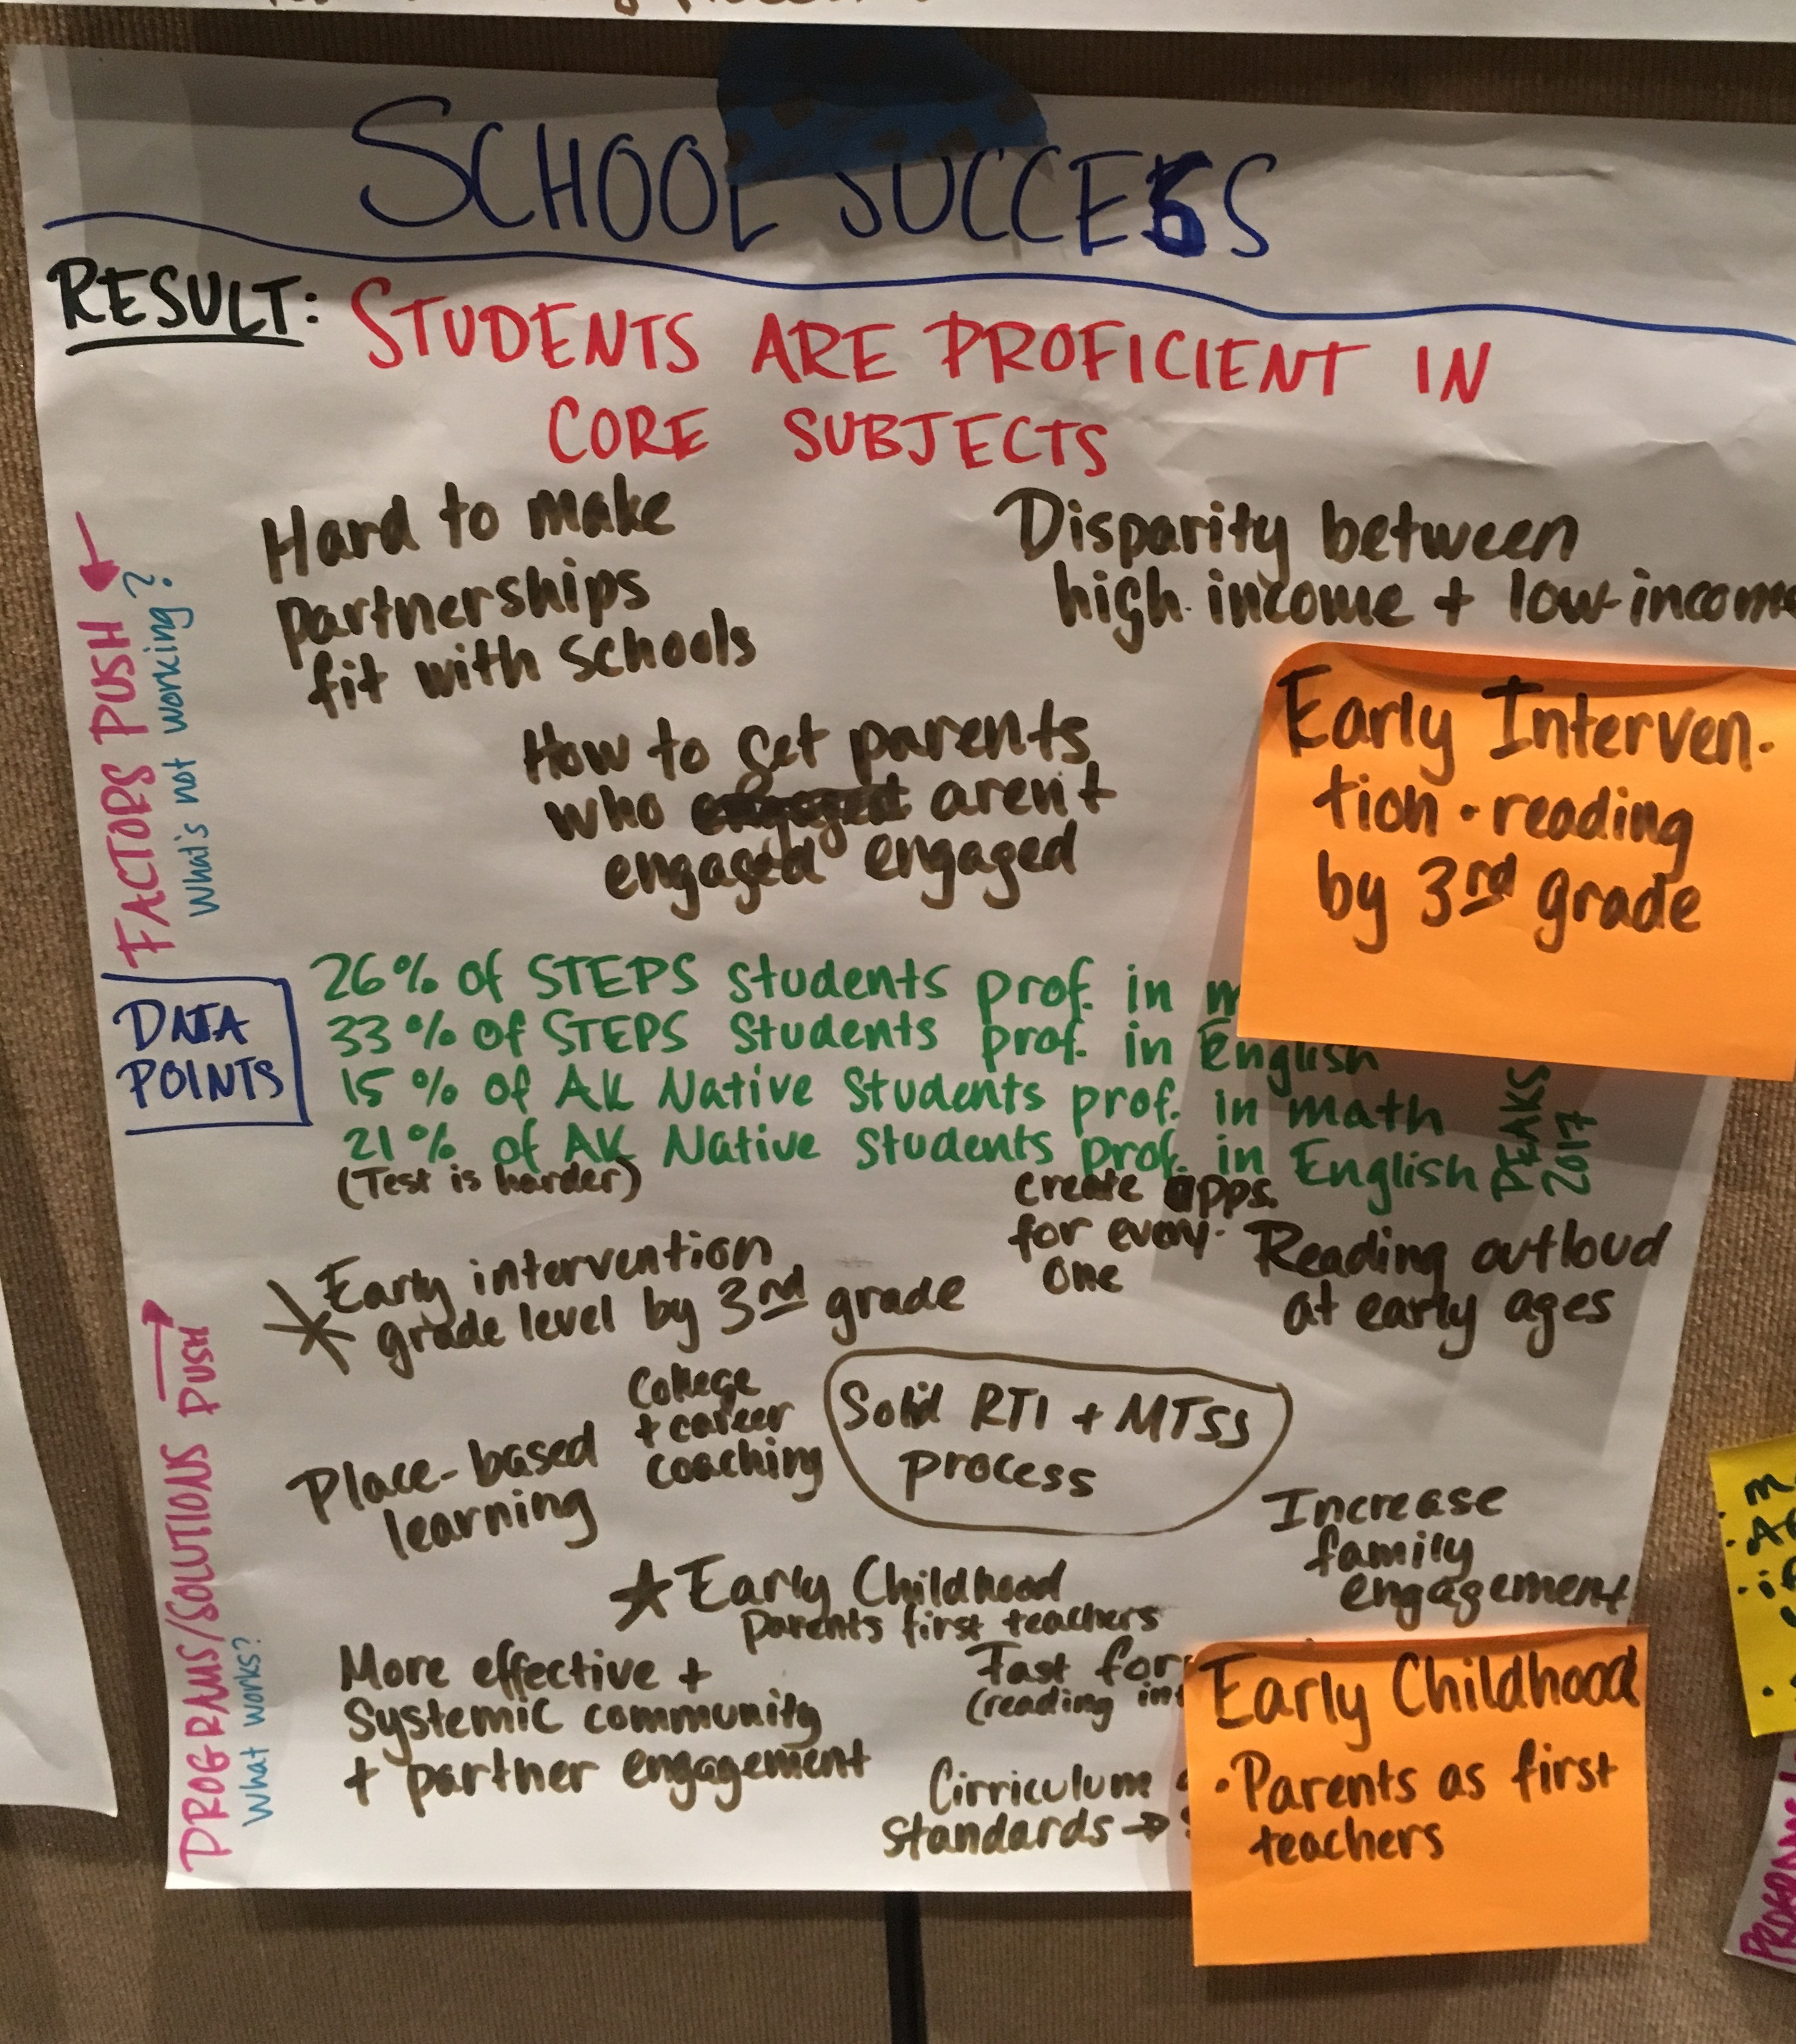 SCHOOL SUCCESS
RESULT: STUDENTS ARE PROFICIENT IN
CORE SUBJECTS
FACTORS PUSH
What's not working?
Hard to make
partnerships
fit with schools
Disparity between
high income + low-income
How to get parents
who aren't
engaged engaged
Early Interven-
tion - reading
by 3rd grade
DATA
POINTS
26% of STEPS students prof. in
33% of STEPS Students prof. in English
15% of AK Native Students prof. in math
21% of AK Native Students prof. in English
PEAKS
2017
(Test is harder)
PROGRAMS/SOLUTIONS PUSH
What works?
Early intervention
grade level by 3rd grade
create opps.
for every-
one
Reading outloud
at early ages
College
+ career
coaching
Place-based
learning
Solid RTI + MTSS
process
Increase
family
engagement
Early Childhood
Parents first teachers
More effective +
Systemic community
+ partner engagement
Fast
(reading
Cirriculum
Standards →
Early Childhood
• Parents as first
teachers